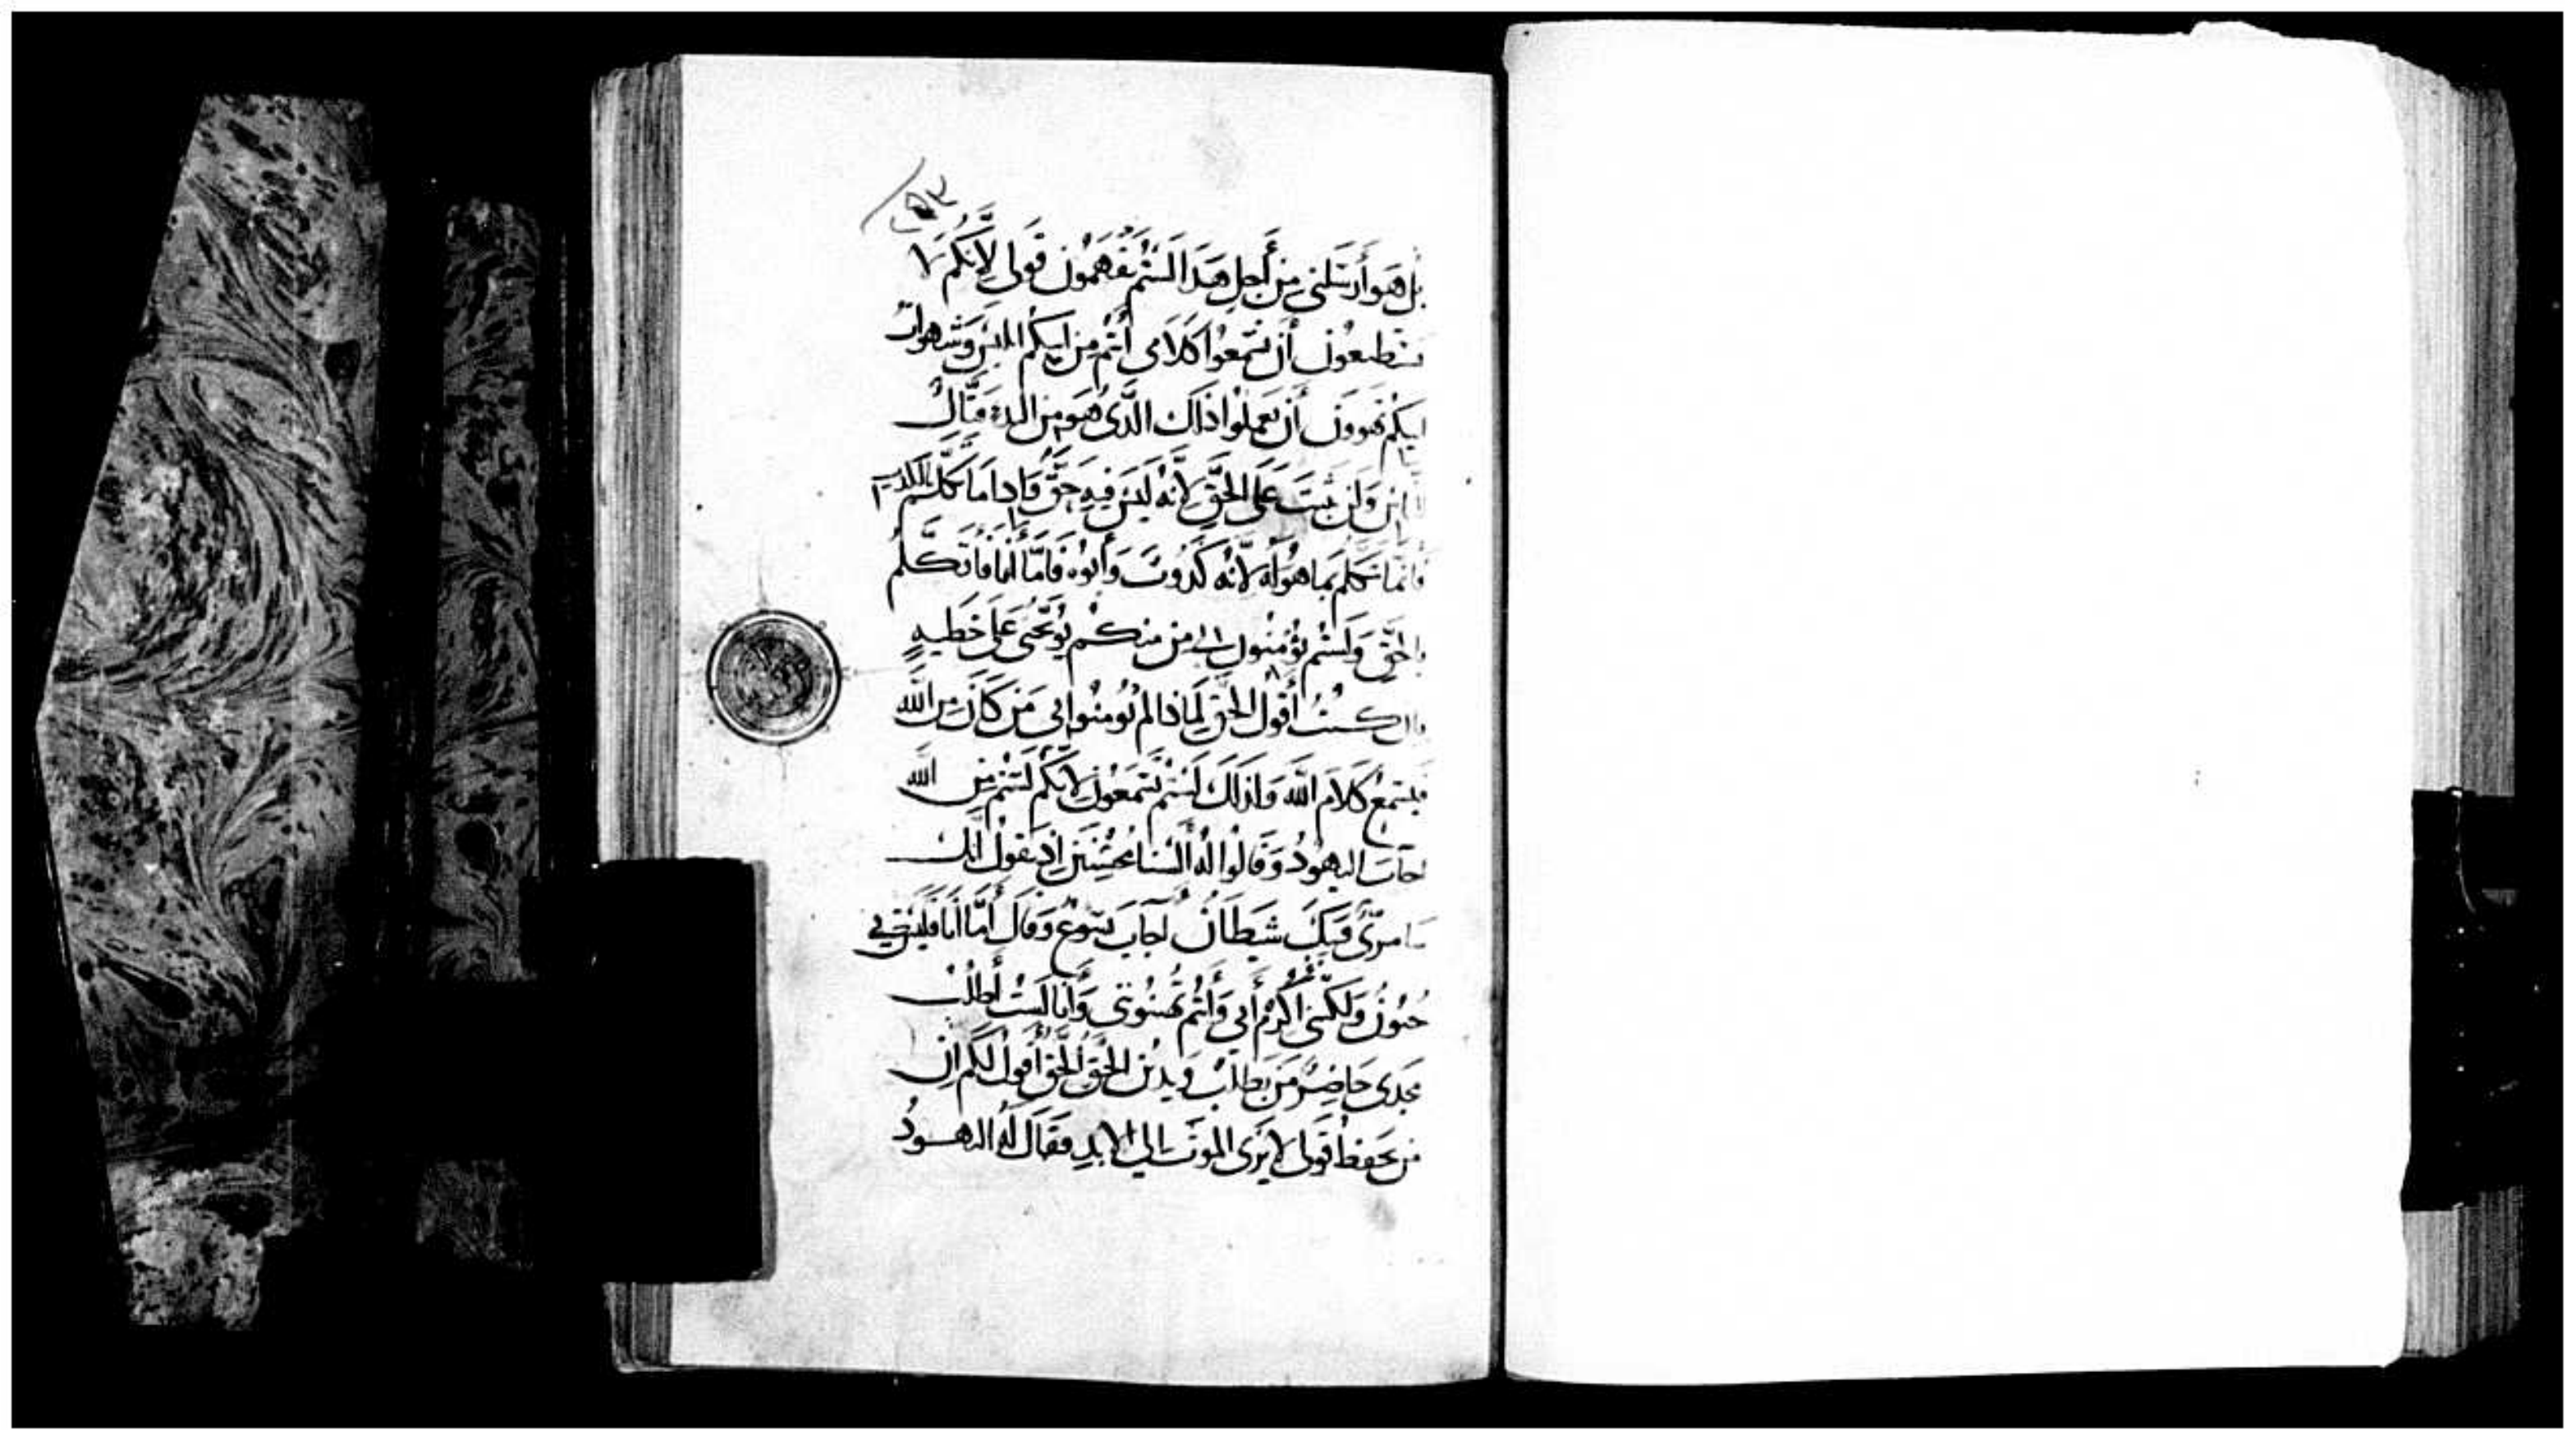 بل هو أرسلني من أجل هذا ألستم تفهمون قولي لأنكم لا
تستطيعون أن تسمعوا كلامي أنتم من أبيكم إبليس وشهوات
أبيكم تهوون أن تعملوا ذاك الذي هو من البدء قتال
ولن يثبت على الحق لأنه ليس فيه حق فإذا ما تكلم بالكذب
فإنما تكلم بما هو له لأنه كذوب وأبوه فأما أنا فأتكلم
بالحق ولستم تؤمنون بي من منكم يوبخني على خطية
كنت أقول الحق لماذا لم تؤمنوا بي من كان من الله
فيسمع كلام الله ولذلك لستم تسمعون لأنكم لستم من الله
أجاب اليهود وقالوا له ألسنا محسنين إذ نقول إنك
سامري وفيك شيطان أجاب يسوع وقال أما أنا فليس في
جنون ولكني أكرم أبي وأنتم تهينونني وأنا لست أطلب
مجدي حاضر من يطلب ويدين الحق الحق أقول لكم إن
من يحفظ قولي لا يرى الموت إلى الأبد فقال له اليهود